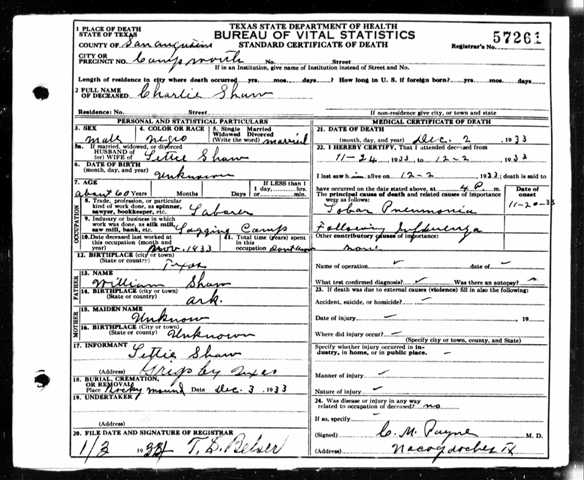 TEXAS STATE DEPARTMENT OF HEALTH
BUREAU OF VITAL STATISTICS
STANDARD CERTIFICATE OF DEATH
57261
Registrar's No.
1 PLACE OF DEATH
STATE OF TEXAS
COUNTY OF San Augustine
CITY OR
PRECINCT NO. Street
If in an Institution, give name of Institution instead of Street and No.
Length of residence in city where death occurred yrs. mos. days. ? How long in U. S. if foreign born? yrs. mos. days
2 FULL NAME
OF DECEASED Charlie Shaw
Residence: No. Street
If non-residence give city, or town and state
PERSONAL AND STATISTICAL PARTICULARS
3. SEX
male
4. COLOR OR RACE
negro
5. Single Married
Widowed
Divorced
(Write the word) married
5a. If married, widowed, or divorced
HUSBAND OF
(or) WIFE OF Lettie Shaw
6. DATE OF BIRTH
(month, day, and year) Unknown
7. AGE
about 60 Years Months Days
IF LESS than 1
day, hrs.
or min.
OCCUPATION
8. Trade, profession, or particular
kind of work done, as spinner,
sawyer, bookkeeper, etc. Laborer
9. Industry or business in which
work was done, as silk mill,
saw mill, bank, etc. Logging Camp
10. Date deceased last worked at
this occupation (month and
year) Nov. 1933
11. Total time (years) spent
in this
occupation
12. BIRTHPLACE (city or town)
(State or country) Texas
FATHER
13. NAME
William Shaw
14. BIRTHPLACE (City or town)
(State or country) Ark.
MOTHER
15. MAIDEN NAME
Unknown
16. BIRTHPLACE (City or town)
(State or country) Unknown
17. INFORMANT Lettie Shaw
(Address) Grigsby Texas
18. BURIAL, CREMATION,
OR REMOVAL
Place Rocky mound Date Dec. 3 1933
19. UNDERTAKER
(Address)
20. FILE DATE AND SIGNATURE OF REGISTRAR
1/3 1934 T. D.
MEDICAL CERTIFICATE OF DEATH
21. DATE OF DEATH
(month, day, and year) Dec. 2 1933
22. I HEREBY CERTIFY, That I attended deceased from
11-24 1933, to 12-2 1933
I last saw him alive on 12-2 1933; death is said to
have occurred on the date stated above, at 4 P. m.
The principal cause of death and related causes of importance
were as follows:
Date of
onset
Lobar Pneumonia
11-20-33
Following Influenza
Other contributory causes of importance:
none
Name of operation date of
What test confirmed diagnosis? Was there an autopsy?
23. If death was due to external causes (violence) fill in also the following:
Accident, suicide, or homicide?
Date of injury 19
Where did injury occur?
(Specify city or town, county, and State)
Specify whether injury occurred in in-
dustry, in home, or in public place.
Manner of injury
Nature of injury
24. Was disease or injury in any way
related to occupation of deceased? no
If so, specify
(Signed) C. M. Payne M. D.
(Address) Nacogdoches Tx